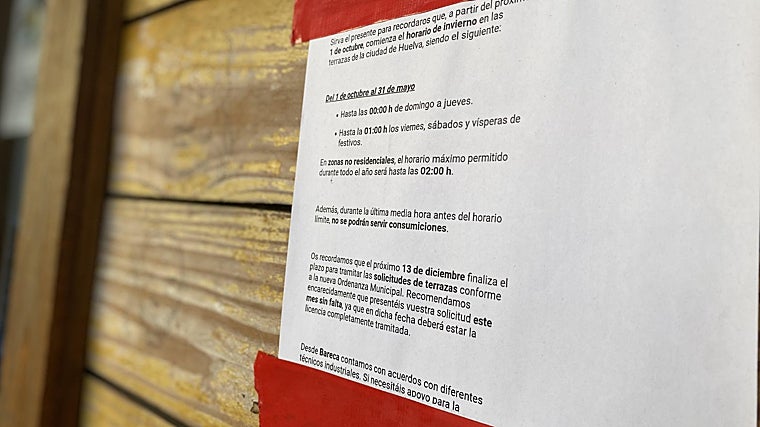 Sirva el presente para recordaros que, a partir del próximo
1 de octubre, comienza el horario de invierno en las
terrazas de la ciudad de Huelva, siendo el siguiente:
Del 1 de octubre al 31 de mayo
• Hasta las 00:00 h de domingo a jueves.
• Hasta la 01:00 h los viernes, sábados y vísperas de
festivos.
En zonas no residenciales, el horario máximo permitido
durante todo el año será hasta las 02:00 h.
Además, durante la última media hora antes del horario
límite, no se podrán servir consumiciones.
Os recordamos que el próximo 13 de diciembre finaliza el
plazo para tramitar las solicitudes de terrazas conforme
a la nueva Ordenanza Municipal. Recomendamos
encarecidamente que presentéis vuestra solicitud este
mes sin falta, ya que en dicha fecha deberá estar la
licencia completamente tramitada.
Desde Bareca contamos con acuerdos con diferentes
técnicos industriales. Si necesitáis apoyo para la